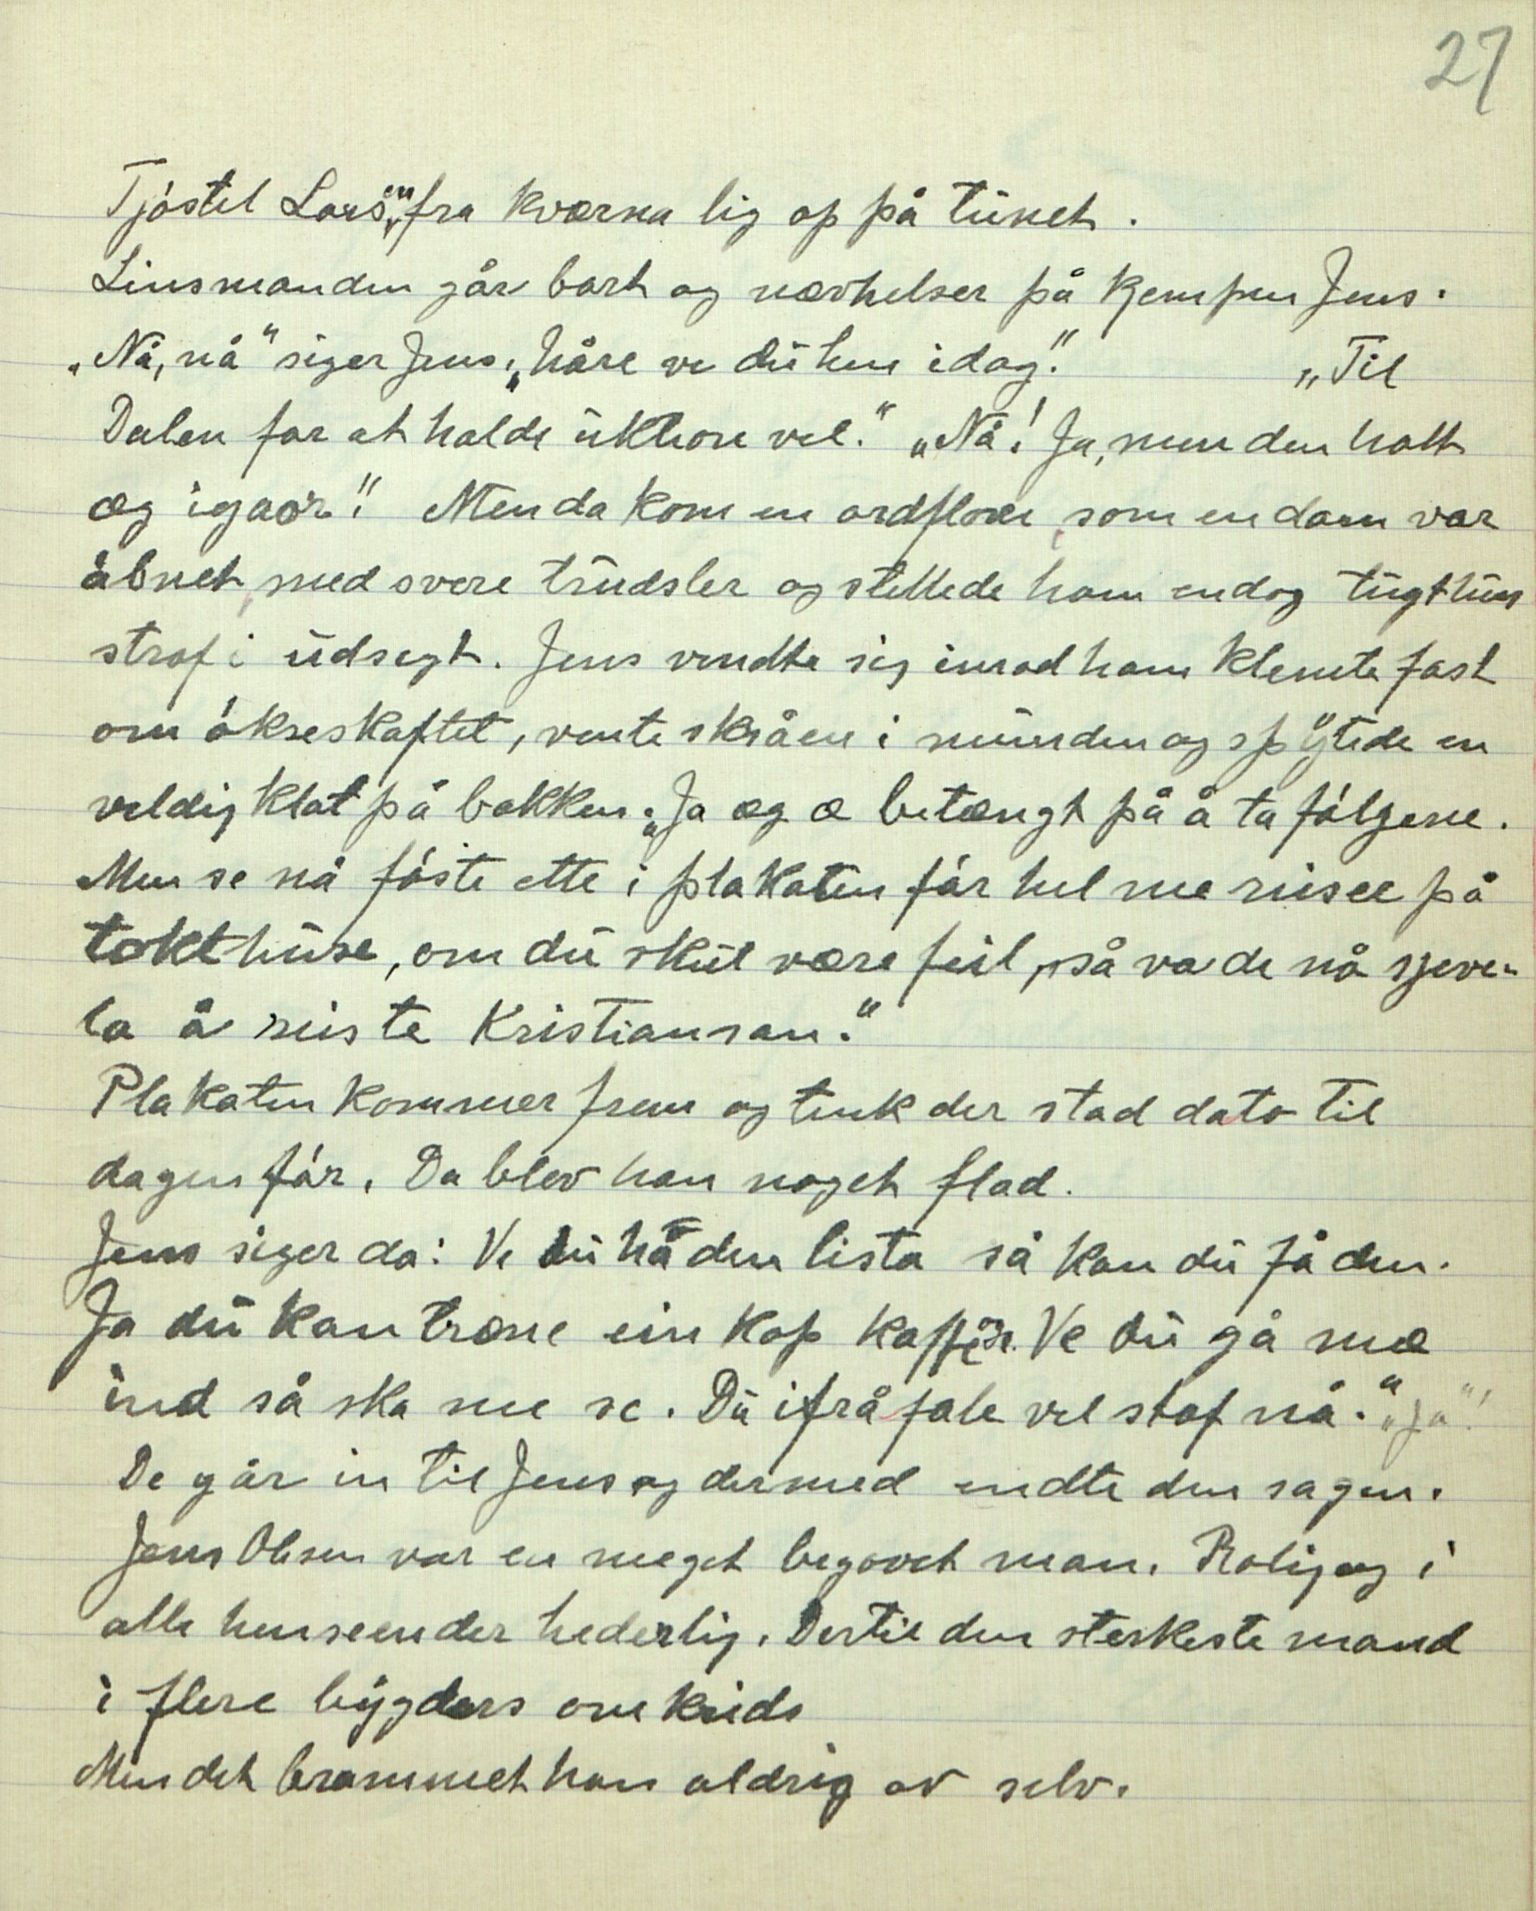 27
Tjöstel Larsen fra Kværna lig op på tunet.
Linsmanden går bort og nævhelser på Kjempen Jens.
„Nå, nå" siger Jens, „håre ve du hen idag." „Til
Dalen for at holde ukthore vel." „Nå! Ja, men den holt
æg igaor." Men da kom en ordflom som en dam var
åbnet, med svere trudsler og stellede ham endog tugthus
straf i udsegt. Jens vendte sig imod ham klemte fast
om økseskaftet, vente skråen i munden og spÿtede en
veldig klat på bakken. „Ja æg æ betængt på å ta følgene.
Men se nå føste ette i plakaten før hel me reisee på
tokthuse, om du skul være feil, så va de nå sjeve-
la å reis te Kristiansan."
Plakaten kommer frem og tenk der stod dato til
dagen før. Da blev han noget flad.
Jens siger da: Ve du hå den lista så kan du få den.
Ja du kan træne ein kop kaffi. Ve du gå mæ
ind så ska me se. Du ifrå fale vel stof nå." „Ja"!
De går in til Jens og dermed endte den sagen.
Jens Olsen var en meget begavet man. Rolig og i
alle henseender hederlig. Dertil den sterkeste mand
i flere bÿgders omkrids
Men det brammet han aldrig av selv.